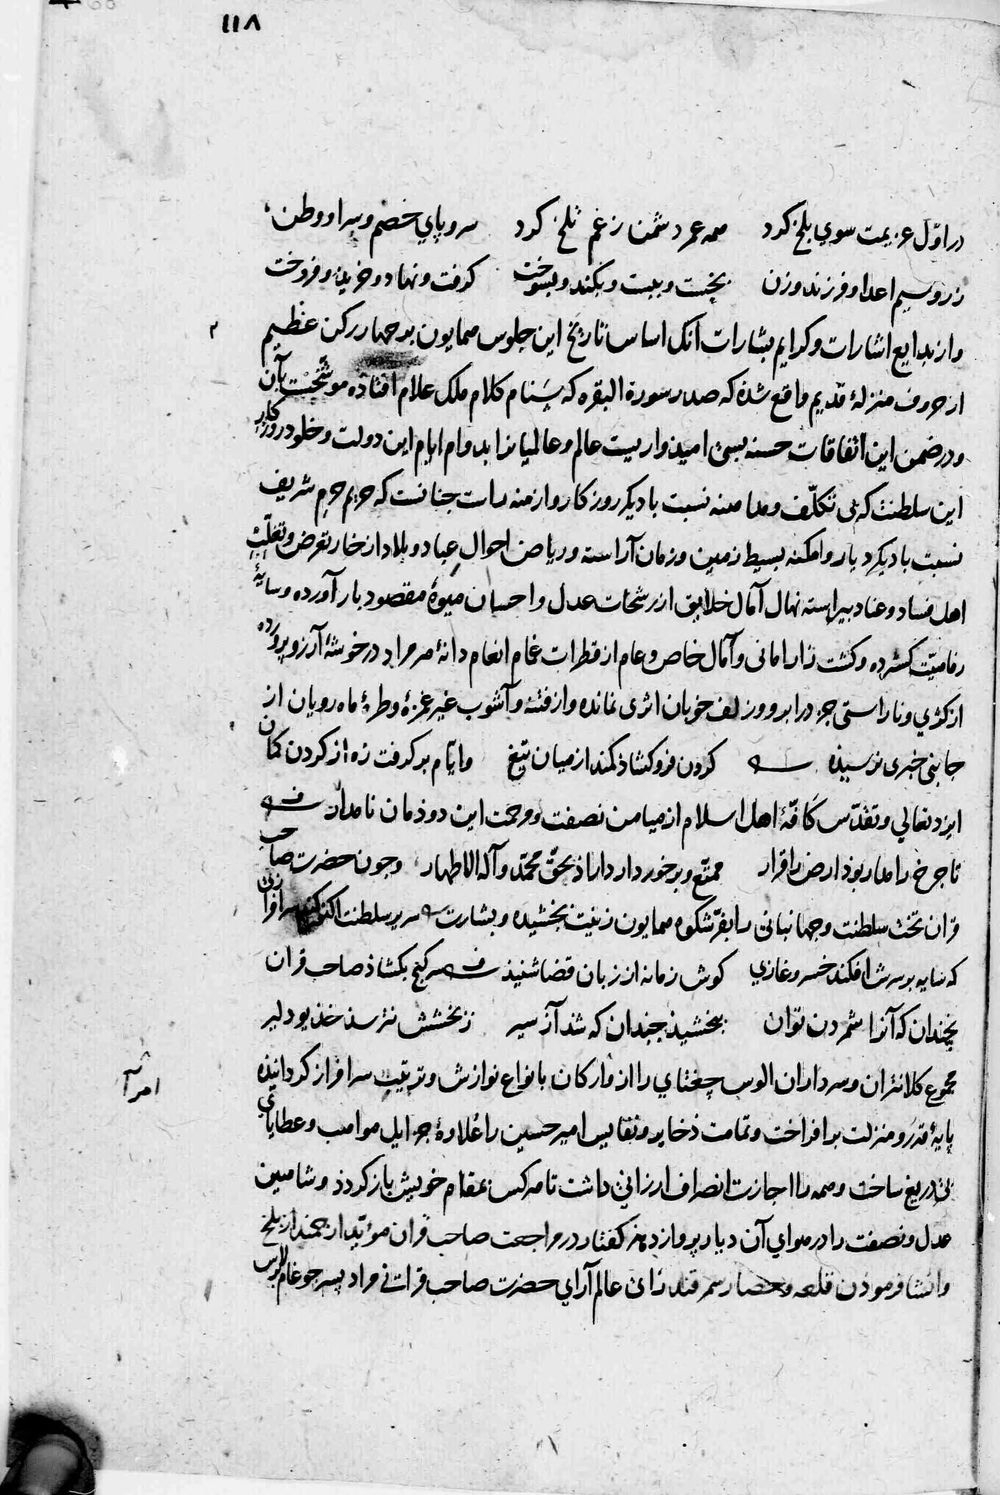 ١١٨
در اوّل عزیمت سوی بلخ کرد همه عمر دشمن زغم تلخ کرد سر و پای خصم و سرا و وطن
زر و سیم اعدا و فرزند و زن بخست و ببست و بکند و بسوخت کرفت و نهاد و خرید و فروخت
و از بدایع اشارات و کرایم بشارات آنک اساس تاریخ این جلوس همایون بر چهار رکن عظیم
از حروف منزلهٔ قدیم واقع شده که صدر سورة البقره که سنام کلام ملک علام افتاده موشحست بآن
و در ضمن این اتفاقات حسنه بسی امیدواریست عالم و عالمیانرا بدوام ایام این دولت و خلود روزکار
این سلطنت که بی تکلّف و مداهنه نسبت با دیکر روزکار و ازمنه راست چنانست که حریم حرم شریف
نسبت با دیکر دیار و امکنه بسیط زمین و زمان آراسته و ریاض احوال عباد و بلاد از خار تعرض و تغلّب
اهل فساد و عناد پیراسته نهال آمال خلایق از رشحات عدل و احسان میوهٔ مقصود بار آورده و سایهٔ
رفاهیّت کسترده و کشت زار امانی و آمال خاص و عام از قطرات غمام انعام دانهٔ هر مراد در خوشهٔ آرزو پرورده
از کژی و ناراستی جز در ابرو و زلف خوبان اثری نمانده و از فتنه و آشوب غیر غمزهٔ و طرهٔ ماه رویان از
جایی خبری نرسیده کردن فرو کشاد کمند از میان تیغ و ایّام بر کرفت زه از کردن کمان
ایزد تعالی و تقدّس کافّهٔ اهل اسلام از میامن نصفت و مرحمت این دوذمان نامدار
تا چرخ را مدار بوذ ارض را قرار ممتّع و برخوردار داراذ بحقّ محمّد و آله الاطهار و چون حضرت صاحب
قران تخت سلطنت و جهانبانی را بفرّ شکوه همایون زینت بخشیده و بشارت سریر سلطنت اکنون کند سرافرازی
که سایه بر سرش افکند خسرو غازی کوش زمانه از زبان قضا شنیذ سر کنج بکشاذ صاحب قران
بچندان که آنرا شمردن توان ببخشیذ چندان که شذ آز سیر ز بخشش نترسذ خذیو دلیر
مجموع کلانتران و سرداران الوس چغتای را از وار کان بانواع نوازش و تربیت سرافراز کردانیذه
پایهٔ قدر و منزلت برافراخت و تمامت ذخایر و نفایس امیر حسین را علاوهٔ جزایل مواهب و عطایای
بی دریغ ساخت و همه را اجازت انصراف ارزانی داشت تا هر کس بمقام خویش باز کردذ و شاهین
عدل و نصفت را در هوای آن دیار پرواز دهذ کفتار در مراجعت صاحب قران مؤیّد ارجمند از بلخ
و انشا فرموذن قلعه و حصار سمرقند رای عالم آرای حضرت صاحب قرانی مراد پسر چوغام برلاس
امرآ